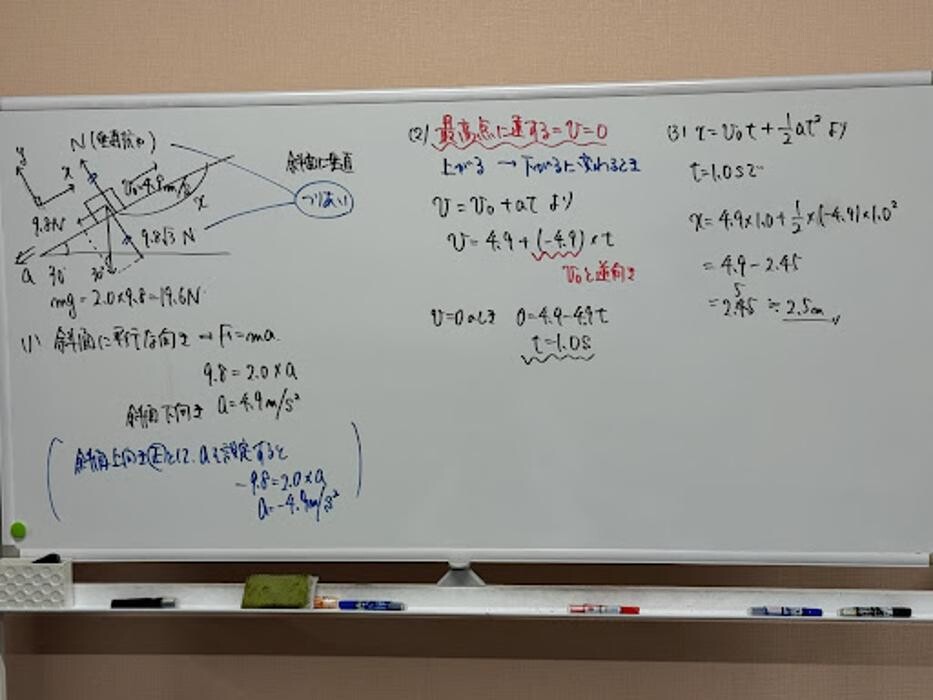 N(垂直抗力)
y
x
V₀=4.9m/s
x
9.8N
9.8√3 N
a 30° 30°
mg=2.0×9.8=19.6N
斜面に垂直
つりあい
(1) 斜面に平行な向き→F=ma
9.8=2.0×a
斜面下向き a=4.9m/s²
斜面上向き正として、aを設定すると
-9.8=2.0×a
a=-4.9m/s²
(2) 最高点に達する=v=0
上がる→下がるに変わるとき
v=v₀+atより
v=4.9+(-4.9)×t
v₀と逆向き
v=0のとき 0=4.9-4.9t
t=1.0s
(3) x=v₀t+½at²より
t=1.0sで
x=4.9×1.0+½×(-4.9)×1.0²
=4.9-2.45
5
=2.45≒2.5m